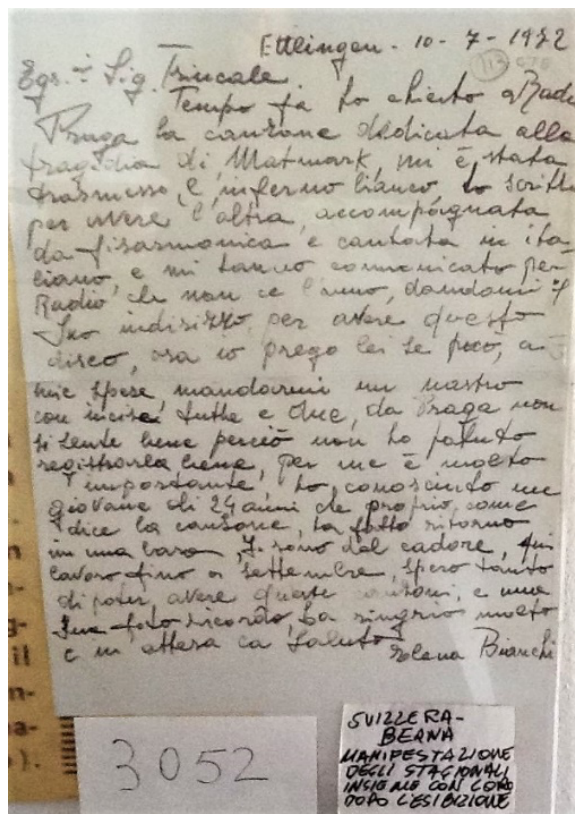 Ettlingen - 10 - 7 - 1972
Egr. Sig. Trincale.
Tempo fa ho chiesto a Radio
Praga la canzone dedicata alla
tragedia di Matmark, mi è stata
trasmesso, l'inferno bianco, ho scritto
per avere l'altra accompagnata
da fisarmonica e cantata in ita
liano, e mi hanno comunicato per
Radio che non ce l'anno, dandomi il
Suo indirizzo per avere questo
disco, ora io prego lei se può, a
mie spese, mandarmi un nastro
con incise tutte e due, da Praga non
si sente bene perciò non ho potuto
registrarla bene, per me è molto
importante ho conosciuto un
giovane di 24 anni che proprio come
dice la canzone, ha fatto ritorno
in una bara, sono dal cadore, qui
lavoro fino a settembre, spero tanto
di poter avere queste canzoni, e una
Sua foto ricordo, la ringrio molto
e in attesa la saluto
Bianchi
il
3052
SVIZZERA-
BERNA
MANIFESTAZIONE
DEGLI STAGIONALI
INSIEME CON LORO
DOPO L'ESIBIZIONE